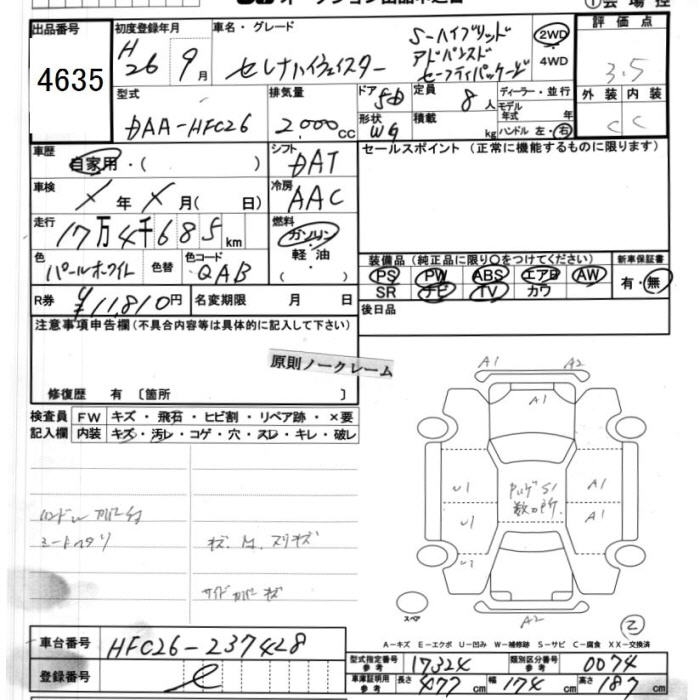 出品番号
4635
初度登録年月
H26 9月
車名・グレード
セレナハイウェイスター
S-ハイブリッド
アドバンスド
セーフティパッケージ
2WD
4WD
評価点
3.5
外装 内装
C C
型式
DAA-HFC26
排気量
2,000cc
ドア
5D
形状
WG
定員
8人
積載
kg
ディーラー・並行
モデル年式 年
ハンドル 左・右
車歴
自家用・( )
シフト
DAT
セールスポイント (正常に機能するものに限ります)
車検
X年 X月( 日)
冷房
AAC
走行
17万4千685km
燃料
ガソリン・軽油
色
パールホワイト
色替
色コード
QAB
装備品 (純正品に限り○をつけてください)
PS PW ABS エアB AW
SR ナビ TV カワ
新車保証書
有・無
R券
¥11,810円
名変期限 月 日
後日品
注意事項申告欄 (不具合内容等は具体的に記入して下さい)
原則ノークレーム
修復歴 有 〔箇所 〕
検査員記入欄
FW キズ・飛石・ヒビ割・リペア跡・×要
内装 キズ・汚レ・コゲ・穴・スレ・キレ・破レ
A1 A2
A1
U1 A1
U1 A1
U1
A2
スペア
A-キズ E-エクボ U-凹み W-補修跡 S-サビ C-腐食 XX-交換済
車台番号
HFC26-237428
登録番号
型式指定番号 参考 17324
類別区分番号 参考 0074
車庫証明用 参考 長さ 477cm 幅 174cm 高さ 187cm